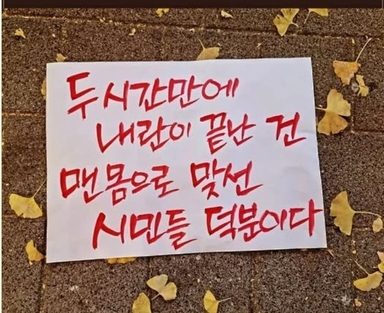 두시간만에
내란이 끝난 건
맨몸으로 맞선
시민들 덕분이다